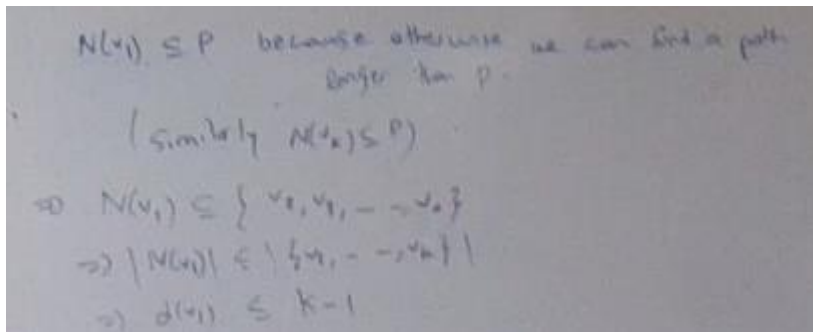 N(v₁) ⊆ P because otherwise we can find a path
longer than P.
(Similarly N(vₖ) ⊆ P)
⇒ N(v₁) ⊆ { v₂, v₃, - - , vₖ}
⇒ |N(v₁)| ≤ |{v₂, - -, vₖ}|
⇒ d(v₁) ≤ k-1